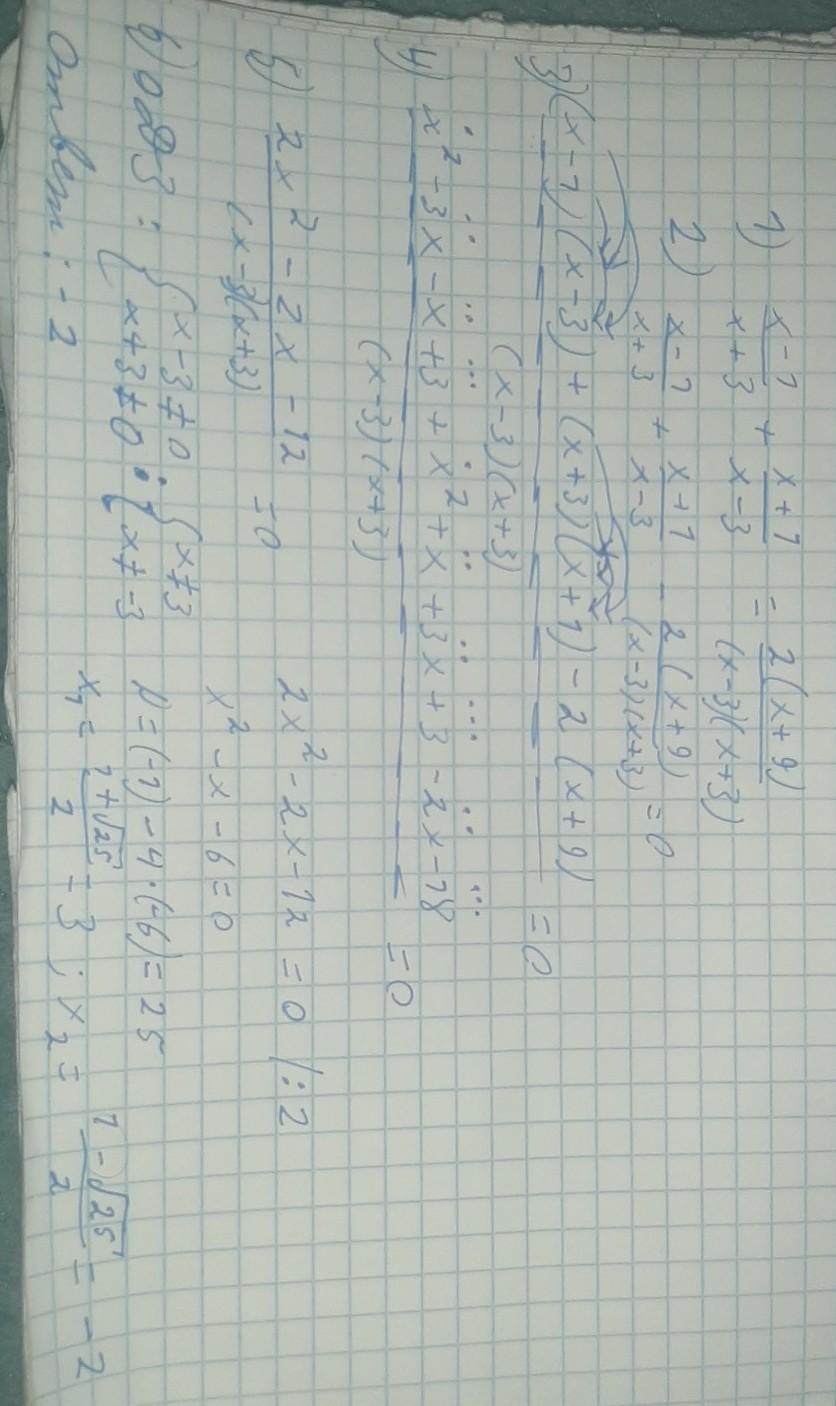 1) x-1/x+3 + x+1/x-3 = 2(x+9)/(x-3)(x+3)
2) x-1/x+3 + x+1/x-3 - 2(x+9)/(x-3)(x+3) = 0
3) (x-1)(x-3) + (x+3)(x+1) - 2(x+9)/(x-3)(x+3) = 0
4) x² - 3x - x + 3 + x² + x + 3x + 3 - 2x - 18/(x-3)(x+3) = 0
5) 2x² - 2x - 12/(x-3)(x+3) = 0
2x² - 2x - 12 = 0 /:2
x² - x - 6 = 0
D = (-1) - 4·(-6) = 25
x₁ = 1+√25/2 = 3 ; x₂ = 1-√25/2 = -2
6) ОДЗ: { x-3≠0 x+3≠0 ; { x≠3 x≠-3
Ответ: -2